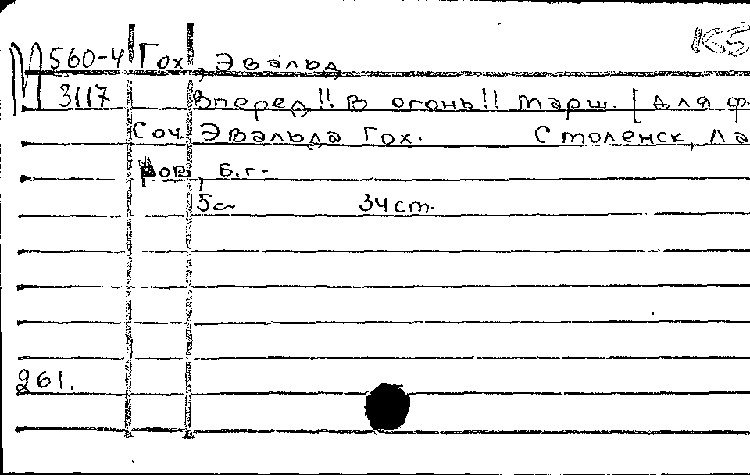 К5
П 560-4 Гох, Эвальд
3117 Вперед!! В огонь!! Марш. [Для ф.
Соч. Эвальда Гох. Смоленск, Ла
ров, б.г.
5с 34 ст.
261.